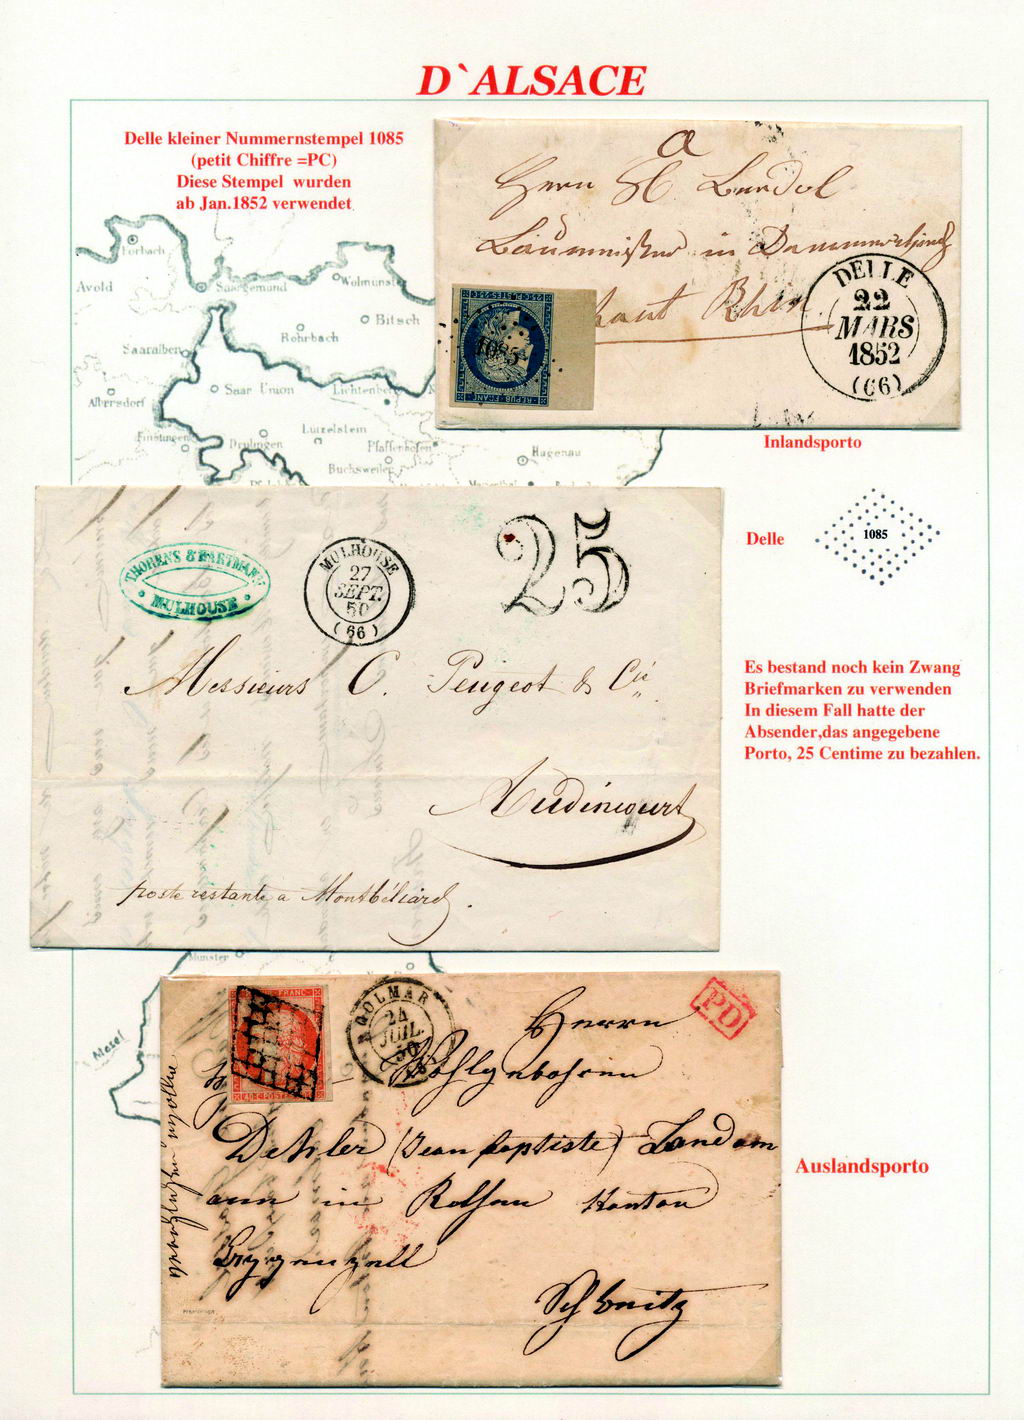 D`ALSACE
Delle kleiner Nummernstempel 1085
(petit Chiffre =PC)
Diese Stempel wurden
ab Jan.1852 verwendet
Forbach
Avold
Saargemund
Wolmunst
Bitsch
Rohrbach
Saaralben
Saar Union
Lichtenberg
Albersdorf
Finstingen
Drulingen
Lutzelstein
Pfaffenhofen
Buchsweiler
Hagenau
a
Herrn
in
haut Rhin
25 C POSTES 25 C
1085
REPUB FRANC
DELLE
22
MARS
1852
(66)
Inlandsporto
Delle
1085
THORENS & HARTMANN
MULHOUSE
MULHOUSE
27
SEPT.
50
(66)
25
Messieurs C. Peugeot & Cie
Audincourt
poste restante a Montbéliard.
Es bestand noch kein Zwang
Briefmarken zu verwenden
In diesem Fall hatte der
Absender,das angegebene
Porto, 25 Centime zu bezahlen.
Munster
Mosel
FRANC
40 C POSTES
COLMAR
24
JUIL.
50
PD
Herrn
(Jean baptiste) Landam
ann in Kanton
Schweitz
Auslandsporto